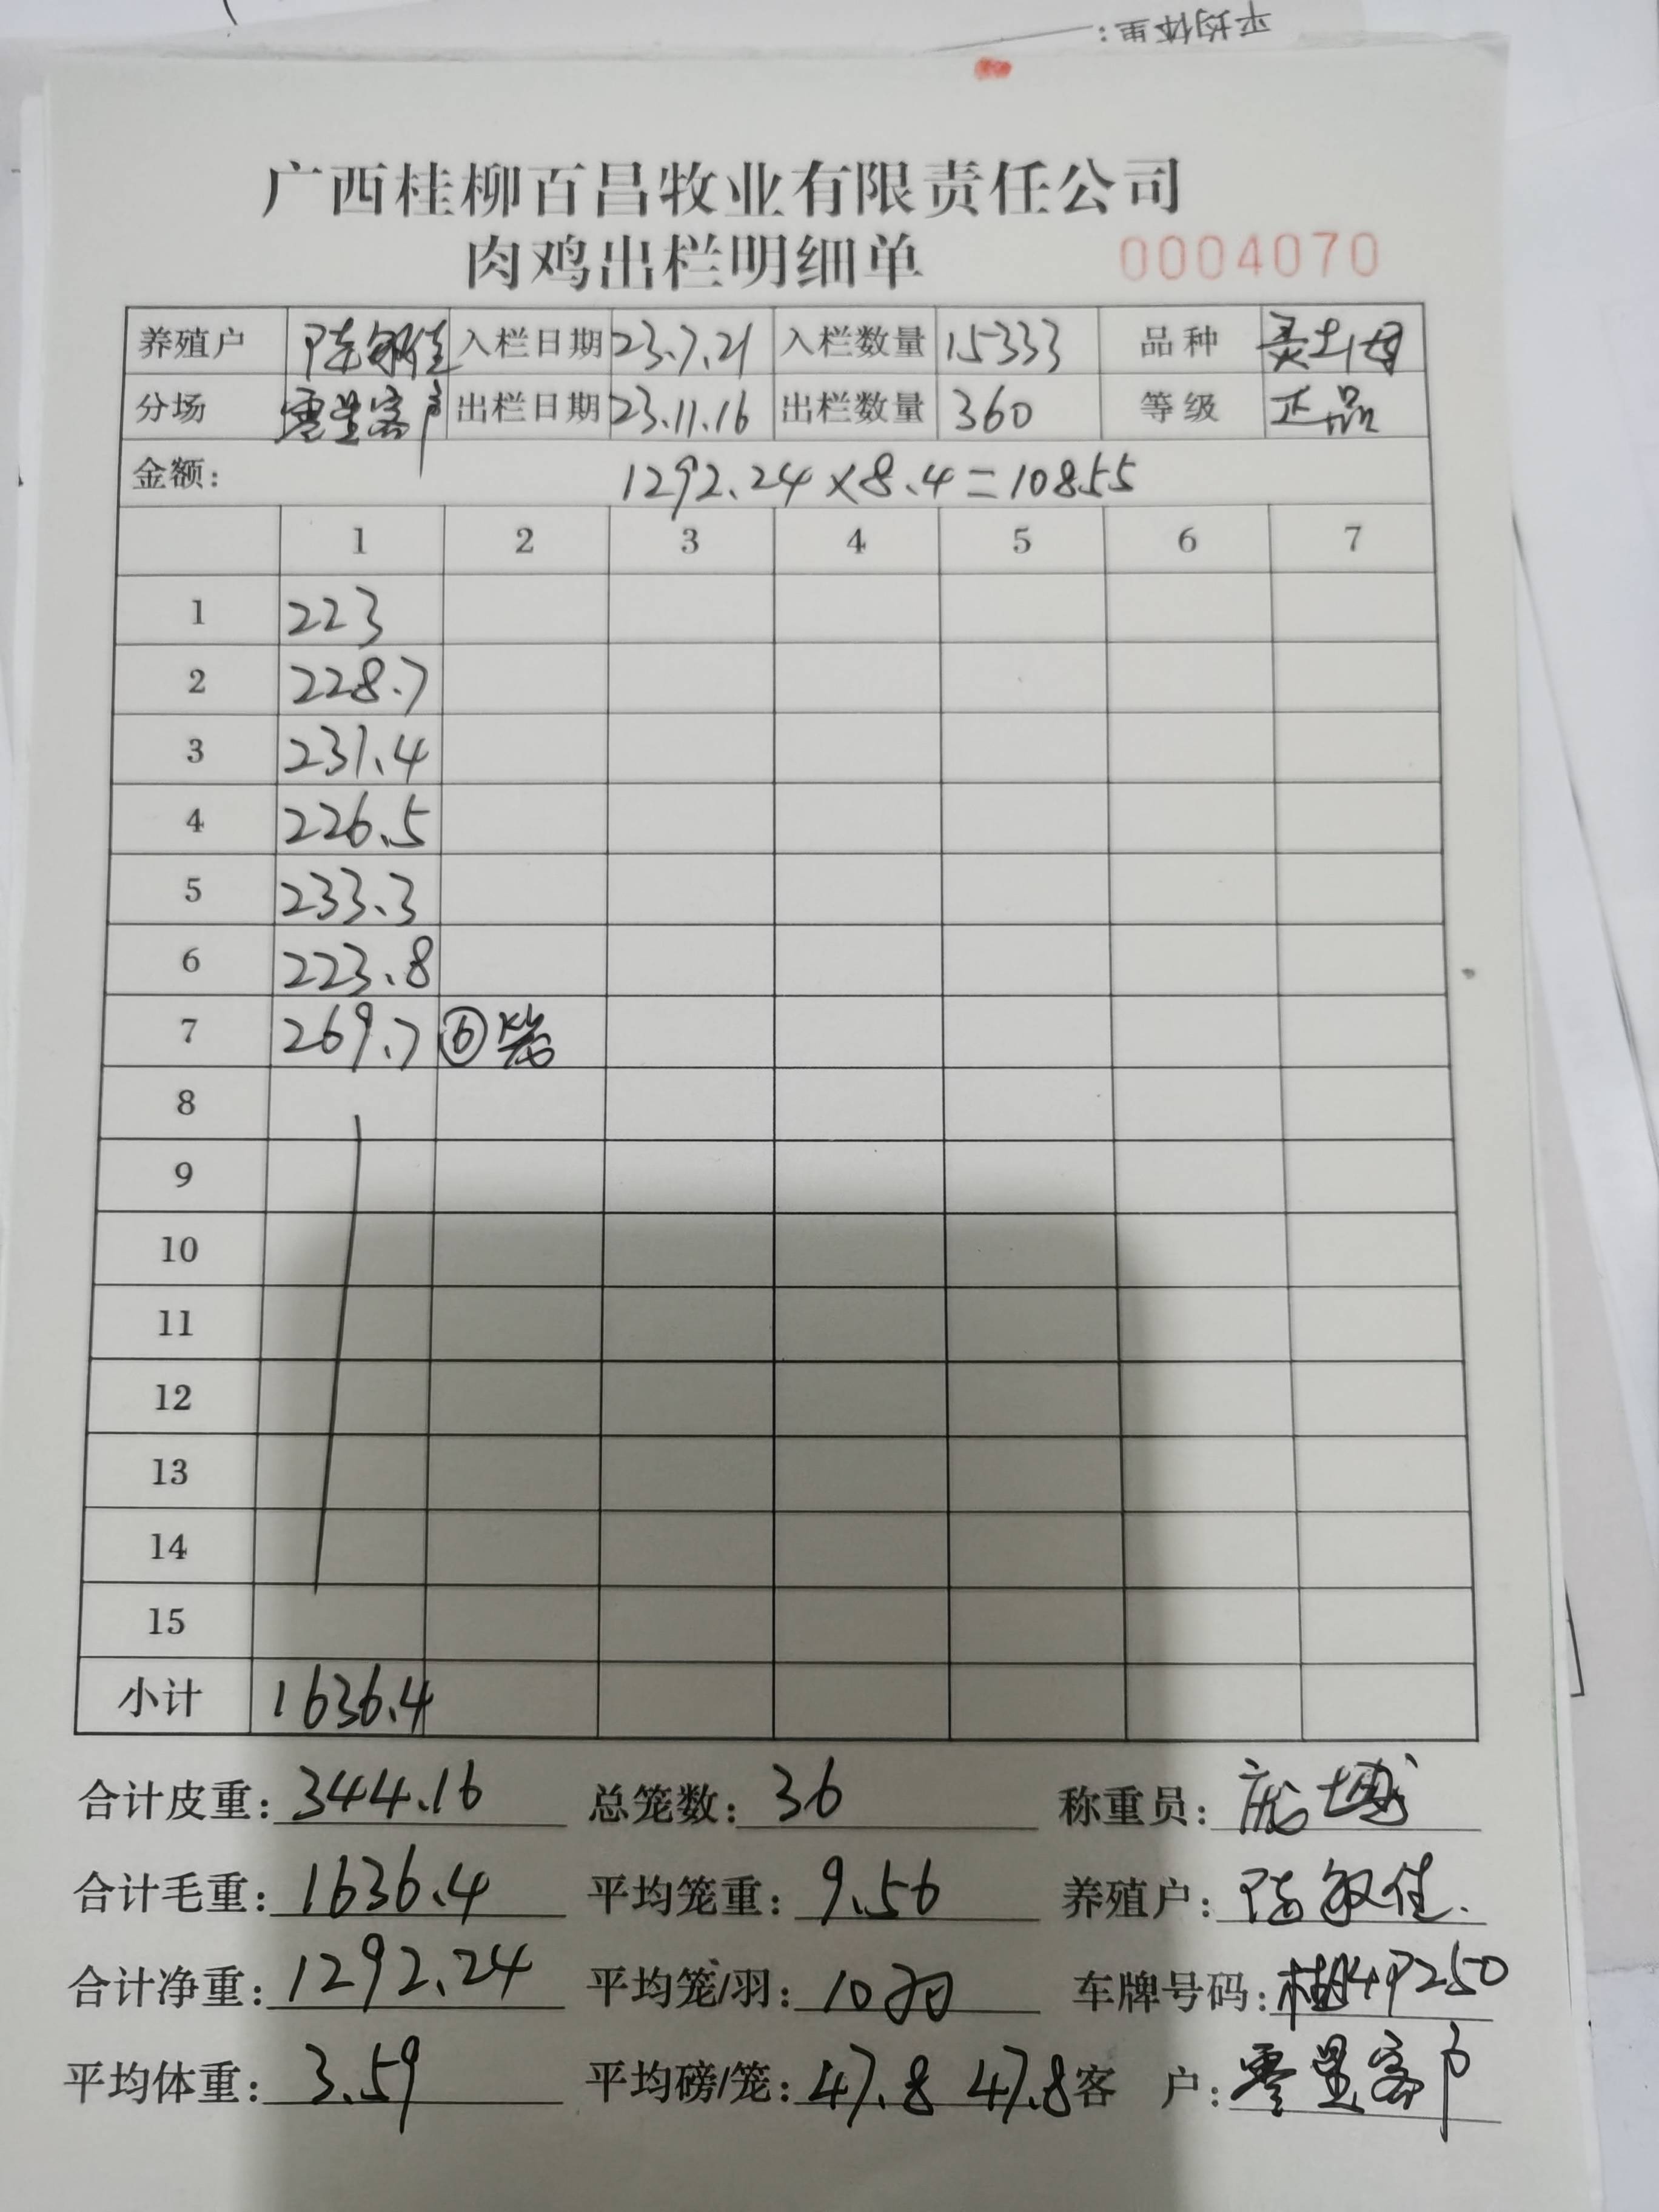 平均体重:
广西桂柳百昌牧业有限责任公司
肉鸡出栏明细单 0004070
养殖户 陈敏佳 入栏日期 23.7.21 入栏数量 15333 品种 灵土母
分场 零星客户 出栏日期 23.11.16 出栏数量 360 等级 正品
金额: 1292.24×8.4=10855
1 2 3 4 5 6 7
1 223
2 228.7
3 231.4
4 226.5
5 233.3
6 223.8
7 269.7 ⑥笼
8
9
10
11
12
13
14
15
小计 1636.4
合计皮重: 344.16 总笼数: 36 称重员:
合计毛重: 1636.4 平均笼重: 9.56 养殖户: 陈敏佳.
合计净重: 1292.24 平均笼/羽: 10羽 车牌号码: 49250
平均体重: 3.59 平均磅/笼: 47.8 47.8 客 户: 零星客户